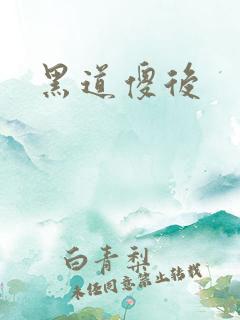 黑道傻後
白青梨
未经同意禁止转载